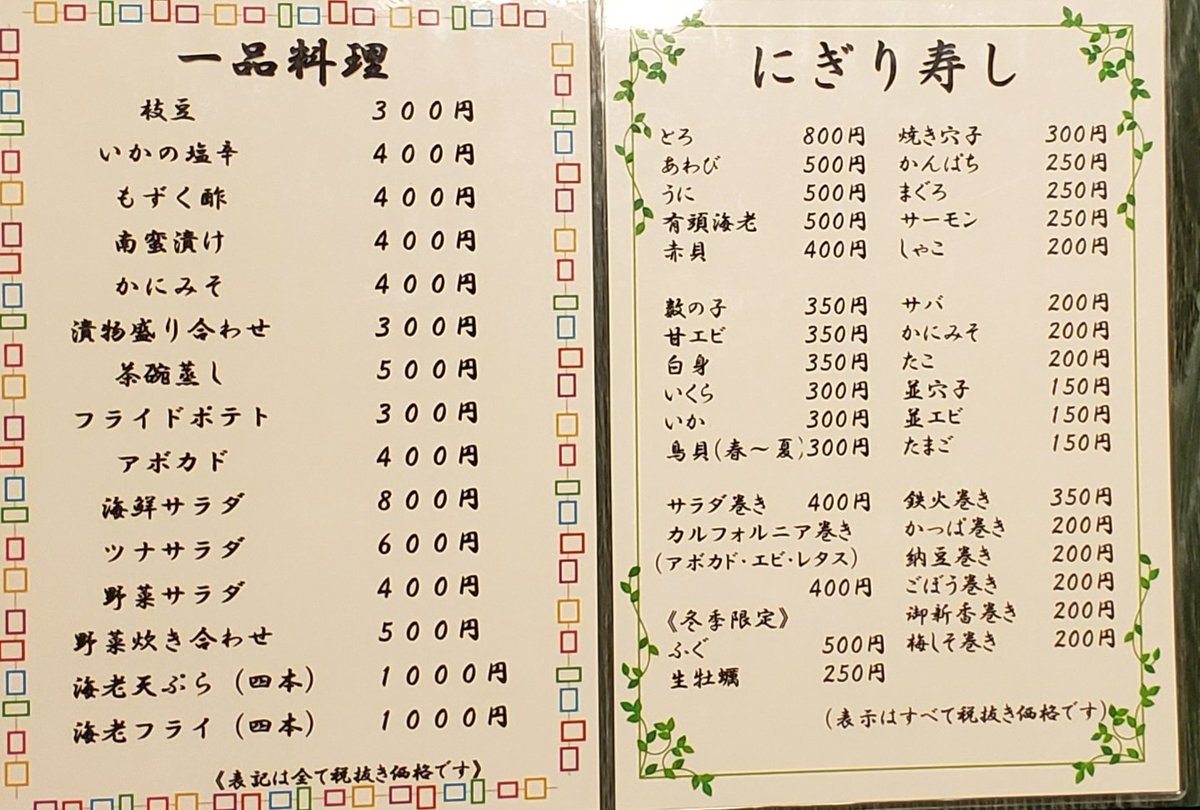 一品料理
枝豆 300円
いかの塩辛 400円
もずく酢 400円
南蛮漬け 400円
かにみそ 400円
漬物盛り合わせ 300円
茶碗蒸し 500円
フライドポテト 300円
アボカド 400円
海鮮サラダ 800円
ツナサラダ 600円
野菜サラダ 400円
野菜炊き合わせ 500円
海老天ぷら(四本) 1000円
海老フライ(四本) 1000円
《表記は全て税抜き価格です》
にぎり寿し
とろ 800円
あわび 500円
うに 500円
有頭海老 500円
赤貝 400円
数の子 350円
甘エビ 350円
白身 350円
いくら 300円
いか 300円
鳥貝(春~夏)300円
サラダ巻き 400円
カルフォルニア巻き
(アボカド・エビ・レタス)
400円
《冬季限定》
ふぐ 500円
生牡蠣 250円
焼き穴子 300円
かんぱち 250円
まぐろ 250円
サーモン 250円
しゃこ 200円
サバ 200円
かにみそ 200円
たこ 200円
並穴子 150円
並エビ 150円
たまご 150円
鉄火巻き 350円
かっぱ巻き 200円
納豆巻き 200円
ごぼう巻き 200円
御新香巻き 200円
梅しそ巻き 200円
(表示はすべて税抜き価格です)